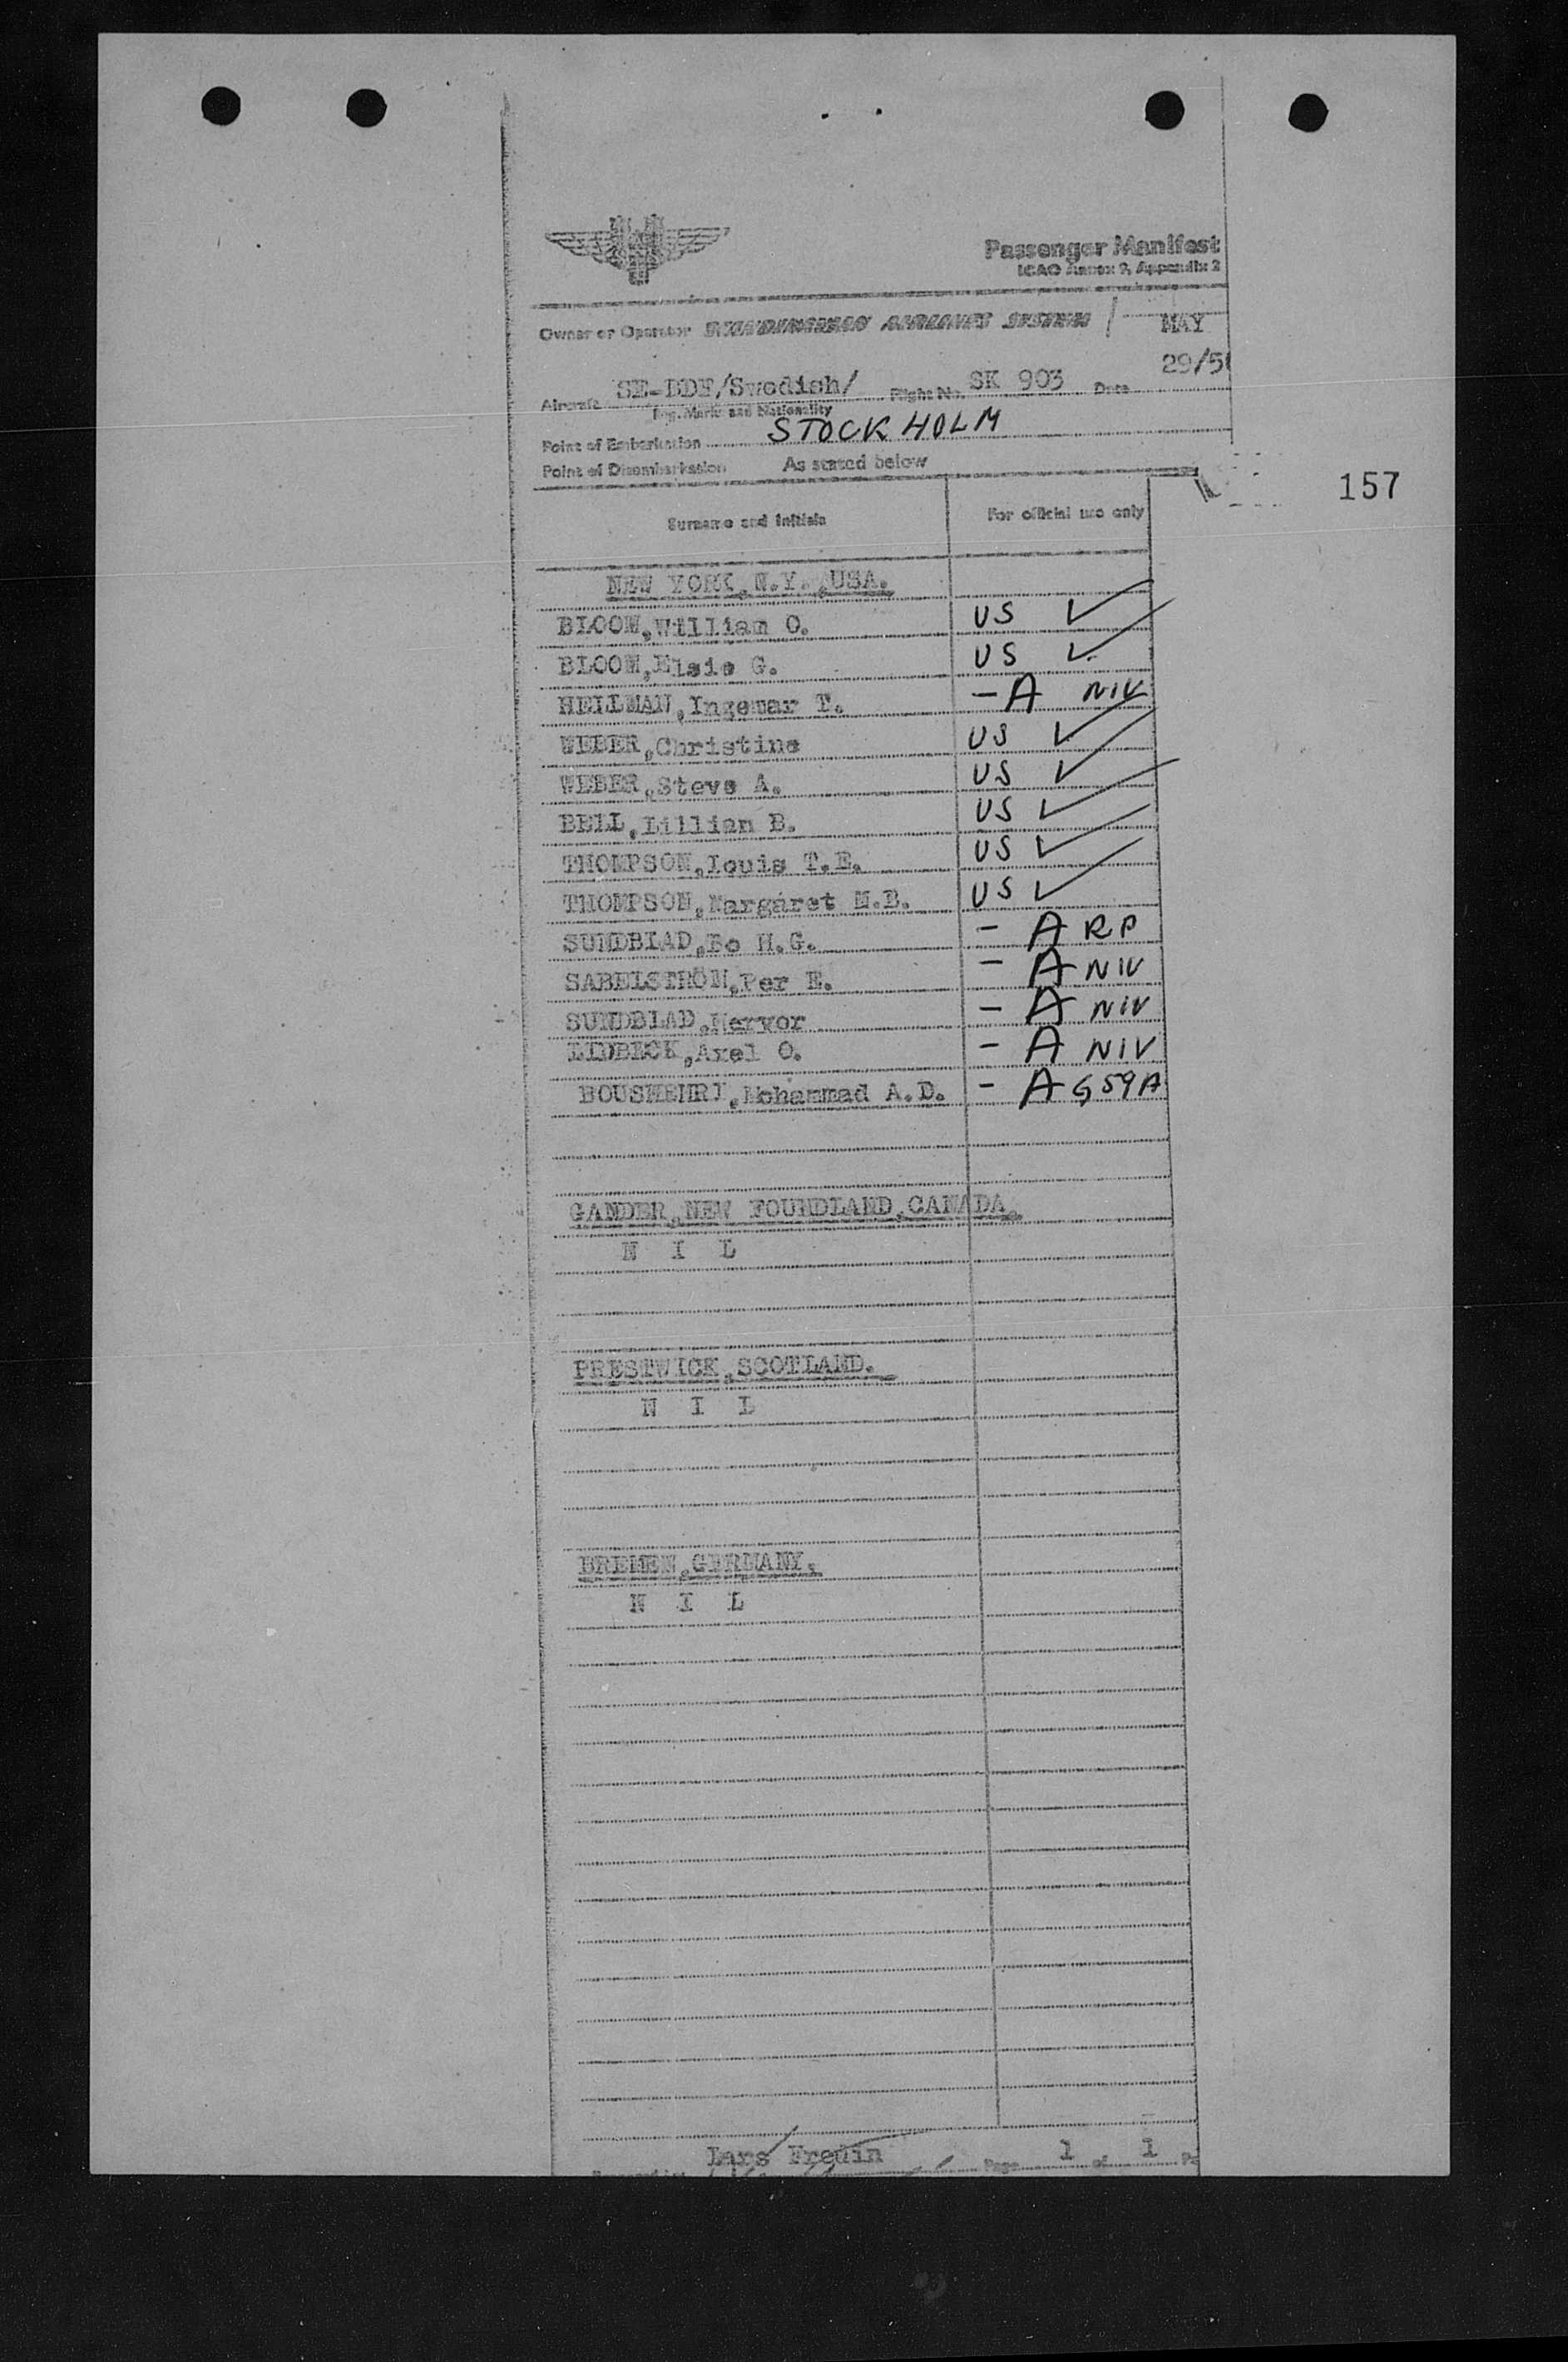 Passenger Manifest
ICAO Annex 9, Appendix 2
Owner or Operator SCANDINAVIAN AIRLINES SYSTEM MAY
29/5
Aircraft SE-BDF/Swedish/ Flight No. SK 903 Date
Reg. Marks and Nationality
Point of Embarkation STOCKHOLM
Point of Disembarkation As stated below
157
Surname and Initials For official use only
NEW YORK,N.Y.,USA.
BLOOM,William O. US ✓
BLOOM,Elsie G. US ✓
HEILMAN,Ingemar T. - A NIV
WEBER,Christine US ✓
WEBER,Steve A. US ✓
BELL,Lillian B. US ✓
THOMPSON,Louis T.E. US ✓
THOMPSON,Margaret M.B. US ✓
SUNDBLAD,Bo H.G. - A RP
SABELSTRÖM,Per E. - A NIV
SUNDBLAD,Mervor - A NIV
LIDBECK,Axel O. - A NIV
BOUSHEHRI,Mohammad A.D. - A G59A
GANDER,NEW FOUNDLAND,CANADA.
N I L
PRESTWICK,SCOTLAND.
N I L
BREMEN,GERMANY.
N I L
Lars Fredin
Page 1 of 1